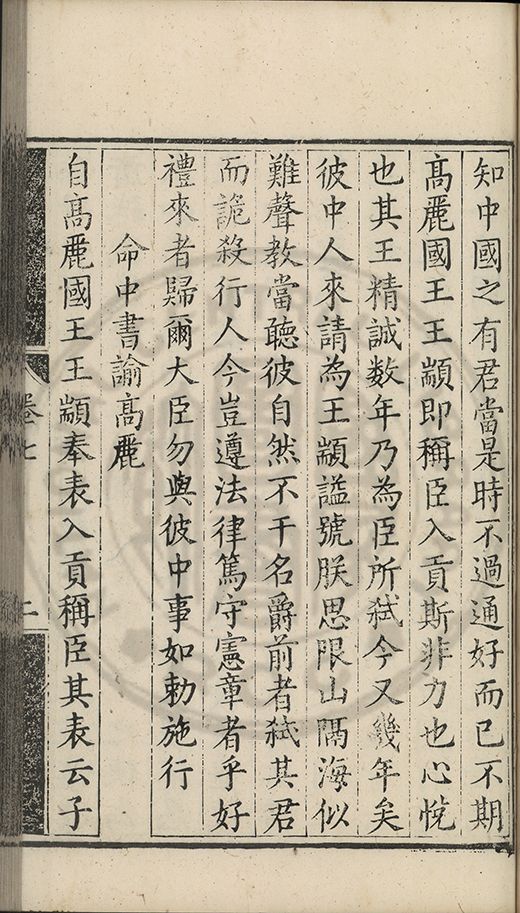 知中國之有君當是時不過通好而已不期
高麗國王王顓即稱臣入貢斯非力也心悅
也其王精誠数年乃為臣所弑今又幾年矣
彼中人來請為王顓謚號朕思限山隔海似
難聲教當聽彼自然不干名爵前者弑其君
而詭殺行人今豈遵法律篤守憲章者乎好
禮來者歸爾大臣勿與彼中事如勅施行
命中書諭高麗
自高麗國王王顓奉表入貢稱臣其表云子
卷七
二